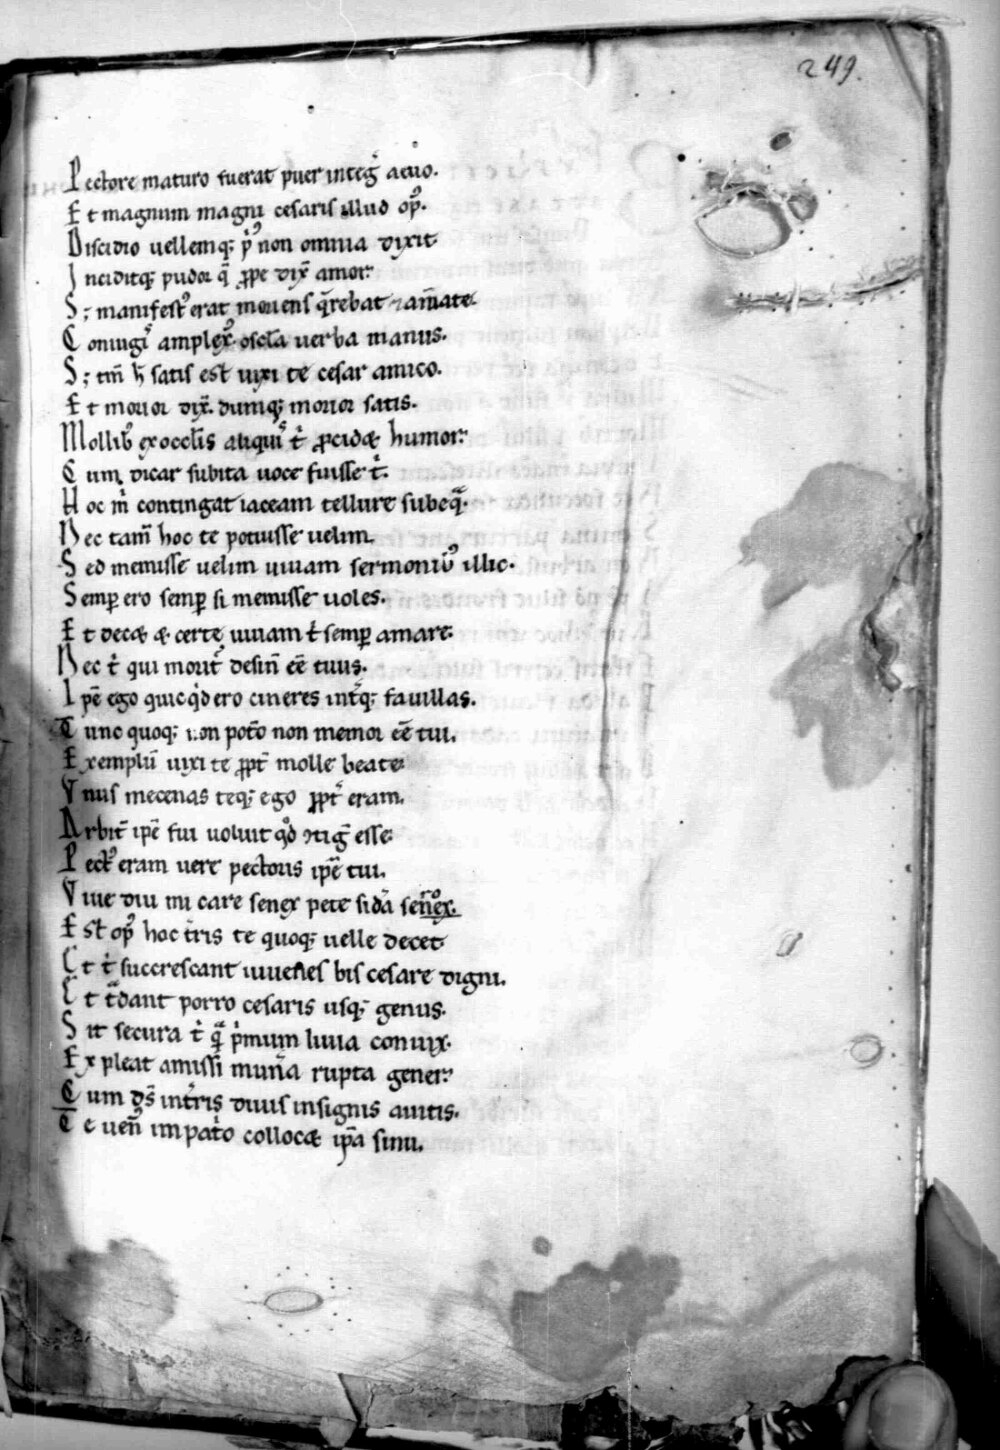 249.
Pectore maturo fuerat puer integ̃ aeuo.
Et magnum magni cesaris illud opꝰ.
Discidio uellemq; pͥꝰ non omnia dixit
Inciditq; pudor q̃ ꝓpe dix̃ amor.
S; manifestꝰ erat moriens q̃rebat ⁊ amate
Coniugͥ amplexꝰ oscl̃a uerba manus.
S; tm̃ h̃ satis est uixi te cesar amico.
Et morior dix̃. dumq; morior satis.
Mollibꝰ ex occl̃is aliquiˢ tͥ ꝓcidæ humor.
Cum dicar subita uoce fuisse tͥ.
Hoc mͥ contingat iaceam tellure sub eq̃.
Nec tam̃ hoc te potuisse uelim.
Sed meruisse uelim uiuam sermonibꝰ illic.
Semꝑ ero semꝑ si meminisse uoles.
Et decæ & certe uiuam tͥ semꝑ amare.
Nec tͥ qui moritᷣ desin̄ eē tuus.
Ipē ego quicqͥd ero cineres int̃q; fauillas.
Tunc quoq; non pot̃o non memor eē tui.
Exemplū uixi te ꝓpt̃ molle beate
Vnus mecenas teq; ego ꝓpt̃ eram.
Arbit̃ ipē fui uoluit qd̃ ↄtig̃ esse
Pectꝰ eram uere pectoris ipē tui.
Viue diu mi care senex pete sid̃a sen̄ex.
Est opꝰ hoc tr̃ris te quoq; uelle decet
Et tͥ succrescant iuuenes bis cesare digni.
Et t̃dant porro cesaris usq; genus.
Sit secura tͥ q̃ pͥmum liuia coniux.
Expleat amissi mun̄a rupta gener.
Cum ds̄ int̃ris diuus insignis auitis.
Te uen̄ im pat̃o collocæ ip̃a sinu.